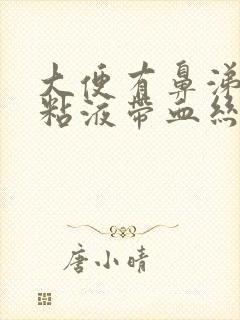 大便有鼻涕
粘液带血丝
唐小晴